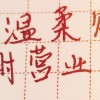 温柔
时营业